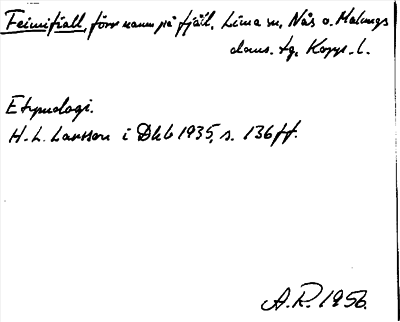 Feimifjäll, förr namn på fjäll, Lima sn, Nås o. Malungs
doms. tg, Kopp. l.
Etymologi.
H. L. Larsson i Dhb 1935, s. 136 ff.
A.R. 1956.